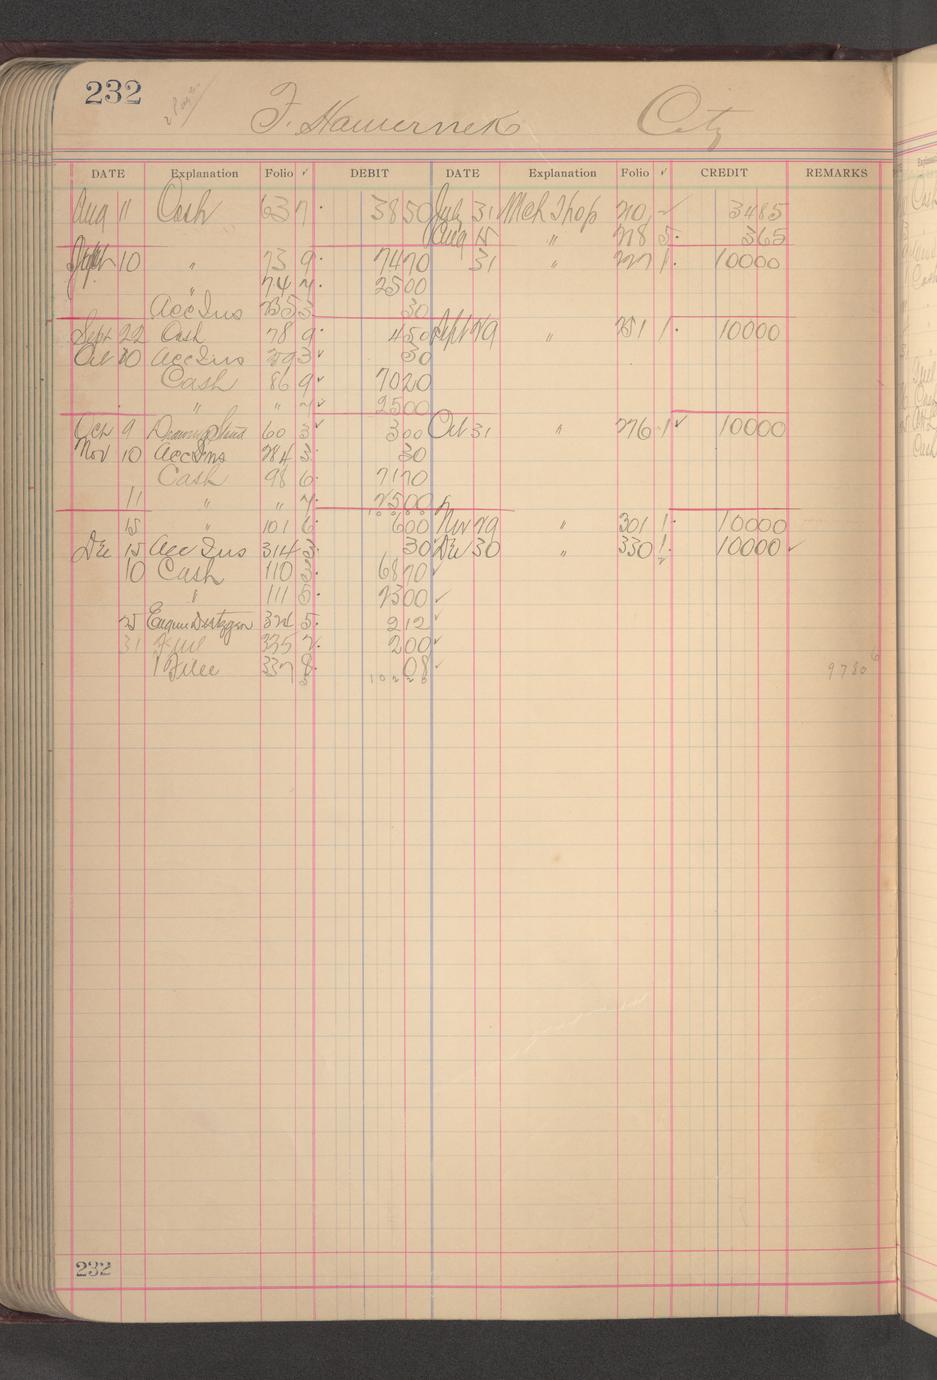 232
F. Hawernek City
DATE Explanation Folio ✓ DEBIT DATE Explanation Folio ✓ CREDIT REMARKS
Aug 11 Cash 63 7 3850 July 31 Mch Shop 210 ✓ 3485
Aug 15 " 218 5 365
Sept 10 " 73 9 7470 31 " 227 1 10000
" 74 2 2500
Acc Ins 235 3 30
Sept 22 Cash 78 9 450 Sept 29 " 251 1 10000
Oct 10 Acc Ins 259 3 30
Cash 86 9 7020
" " 2 2500
Oct 9 60 3 300 Oct 31 " 276 1 ✓ 10000
Nov 10 Acc Ins 284 3 30
Cash 98 6 7170
11 " " 2 2500
15 " 101 6 600 Nov 29 " 301 1 10000
Dec 15 Acc Ins 314 3 30 Dec 30 " 330 1 10000 ✓
10 Cash 110 3 6870 ✓
" 111 5 2300 ✓
25 Eugene Dietzgen 324 5 212 ✓
31 Fuel 335 2 200 ✓
1 Files 337 8 08 ✓
9780
232